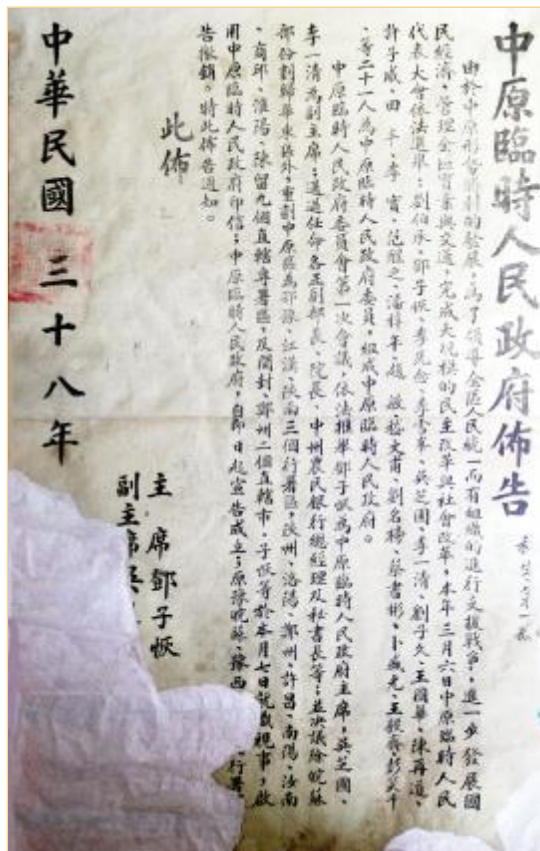 中原臨時人民政府佈告
由於中原形勢順利的發展，為了領導全區人民統一而有組織的進行支援戰爭，進一步發展國
民經濟、管理全區實業與交通，完成大規模的民主改革與社會改革，本年三月六日中原臨時人民
代表大會依法選舉：劉伯承、鄧子恢、李先念、李雪峯、吳芝圃、李一清、劉子久、王國華、陳再道、
許子威、田丰、李實、范醒之、潘梓年、趙敏、嵇文甫、劉名榜、蔡書彬、卜盛光、王毅齋、彭笑千
、等二十一人為中原臨時人民政府委員，組成中原臨時人民政府。
中原臨時人民政府委員會第一次會議，依法推舉鄧子恢為中原臨時人民政府主席，吳芝圃、
李一清為副主席；通過任命各正副部長、院長、中州農民銀行總經理及秘書長等；並決議除皖蘇
部份劃歸華東區外，重劃中原區為鄂豫、江漢、陝南三個行署區，陝州、洛陽、鄭州、許昌、南陽、汝南
、商邱、淮陽、陳留九個直轄專署區，及開封、鄭州二個直轄市。子恢等於本月七日就職視事，啟
用中原臨時人民政府印信；中原臨時人民政府，自即日起宣告成立；原豫皖蘇、豫西 行署
告撤銷。特此佈告通知。
此佈
主席鄧子恢
副主席吳
中華民國三十八年